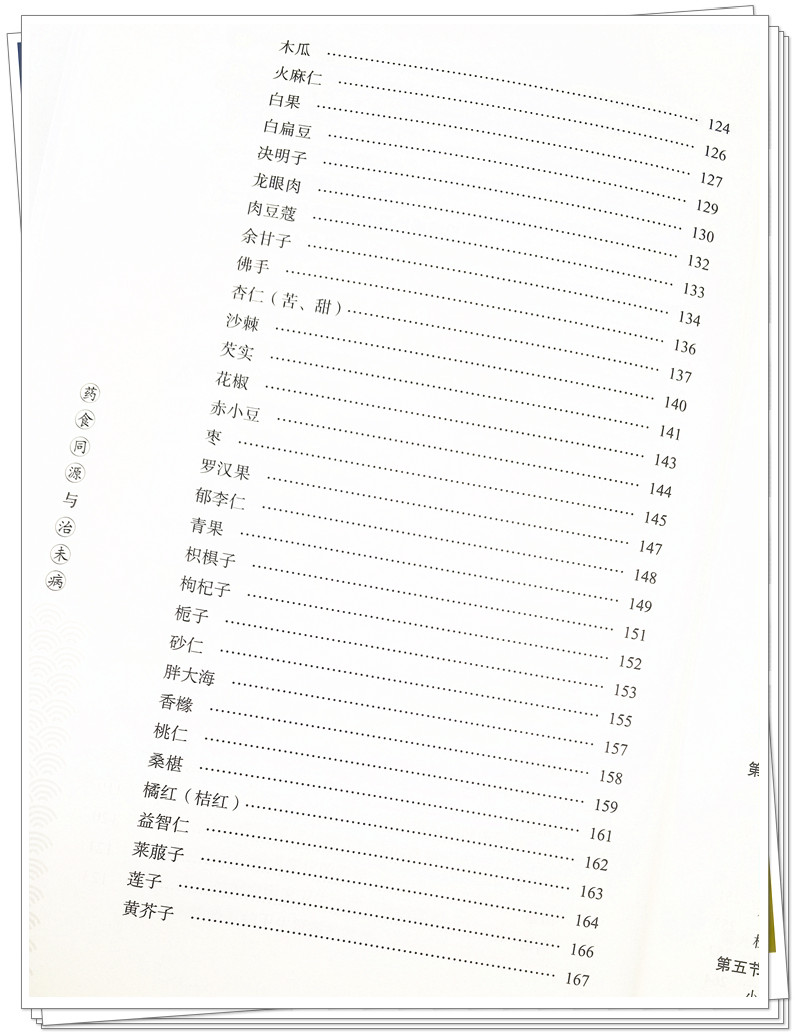 木瓜 124
火麻仁 126
白果 127
白扁豆 129
决明子 130
龙眼肉 132
肉豆蔻 133
余甘子 134
佛手 136
杏仁（苦、甜） 137
沙棘 140
芡实 141
花椒 143
赤小豆 144
枣 145
罗汉果 147
郁李仁 148
青果 149
枳椇子 151
枸杞子 152
栀子 153
砂仁 155
胖大海 157
香橼 158
桃仁 159
桑椹 161
橘红（桔红） 162
益智仁 163
莱菔子 164
莲子 166
黄芥子 167
药食同源与治未病
第
第五节